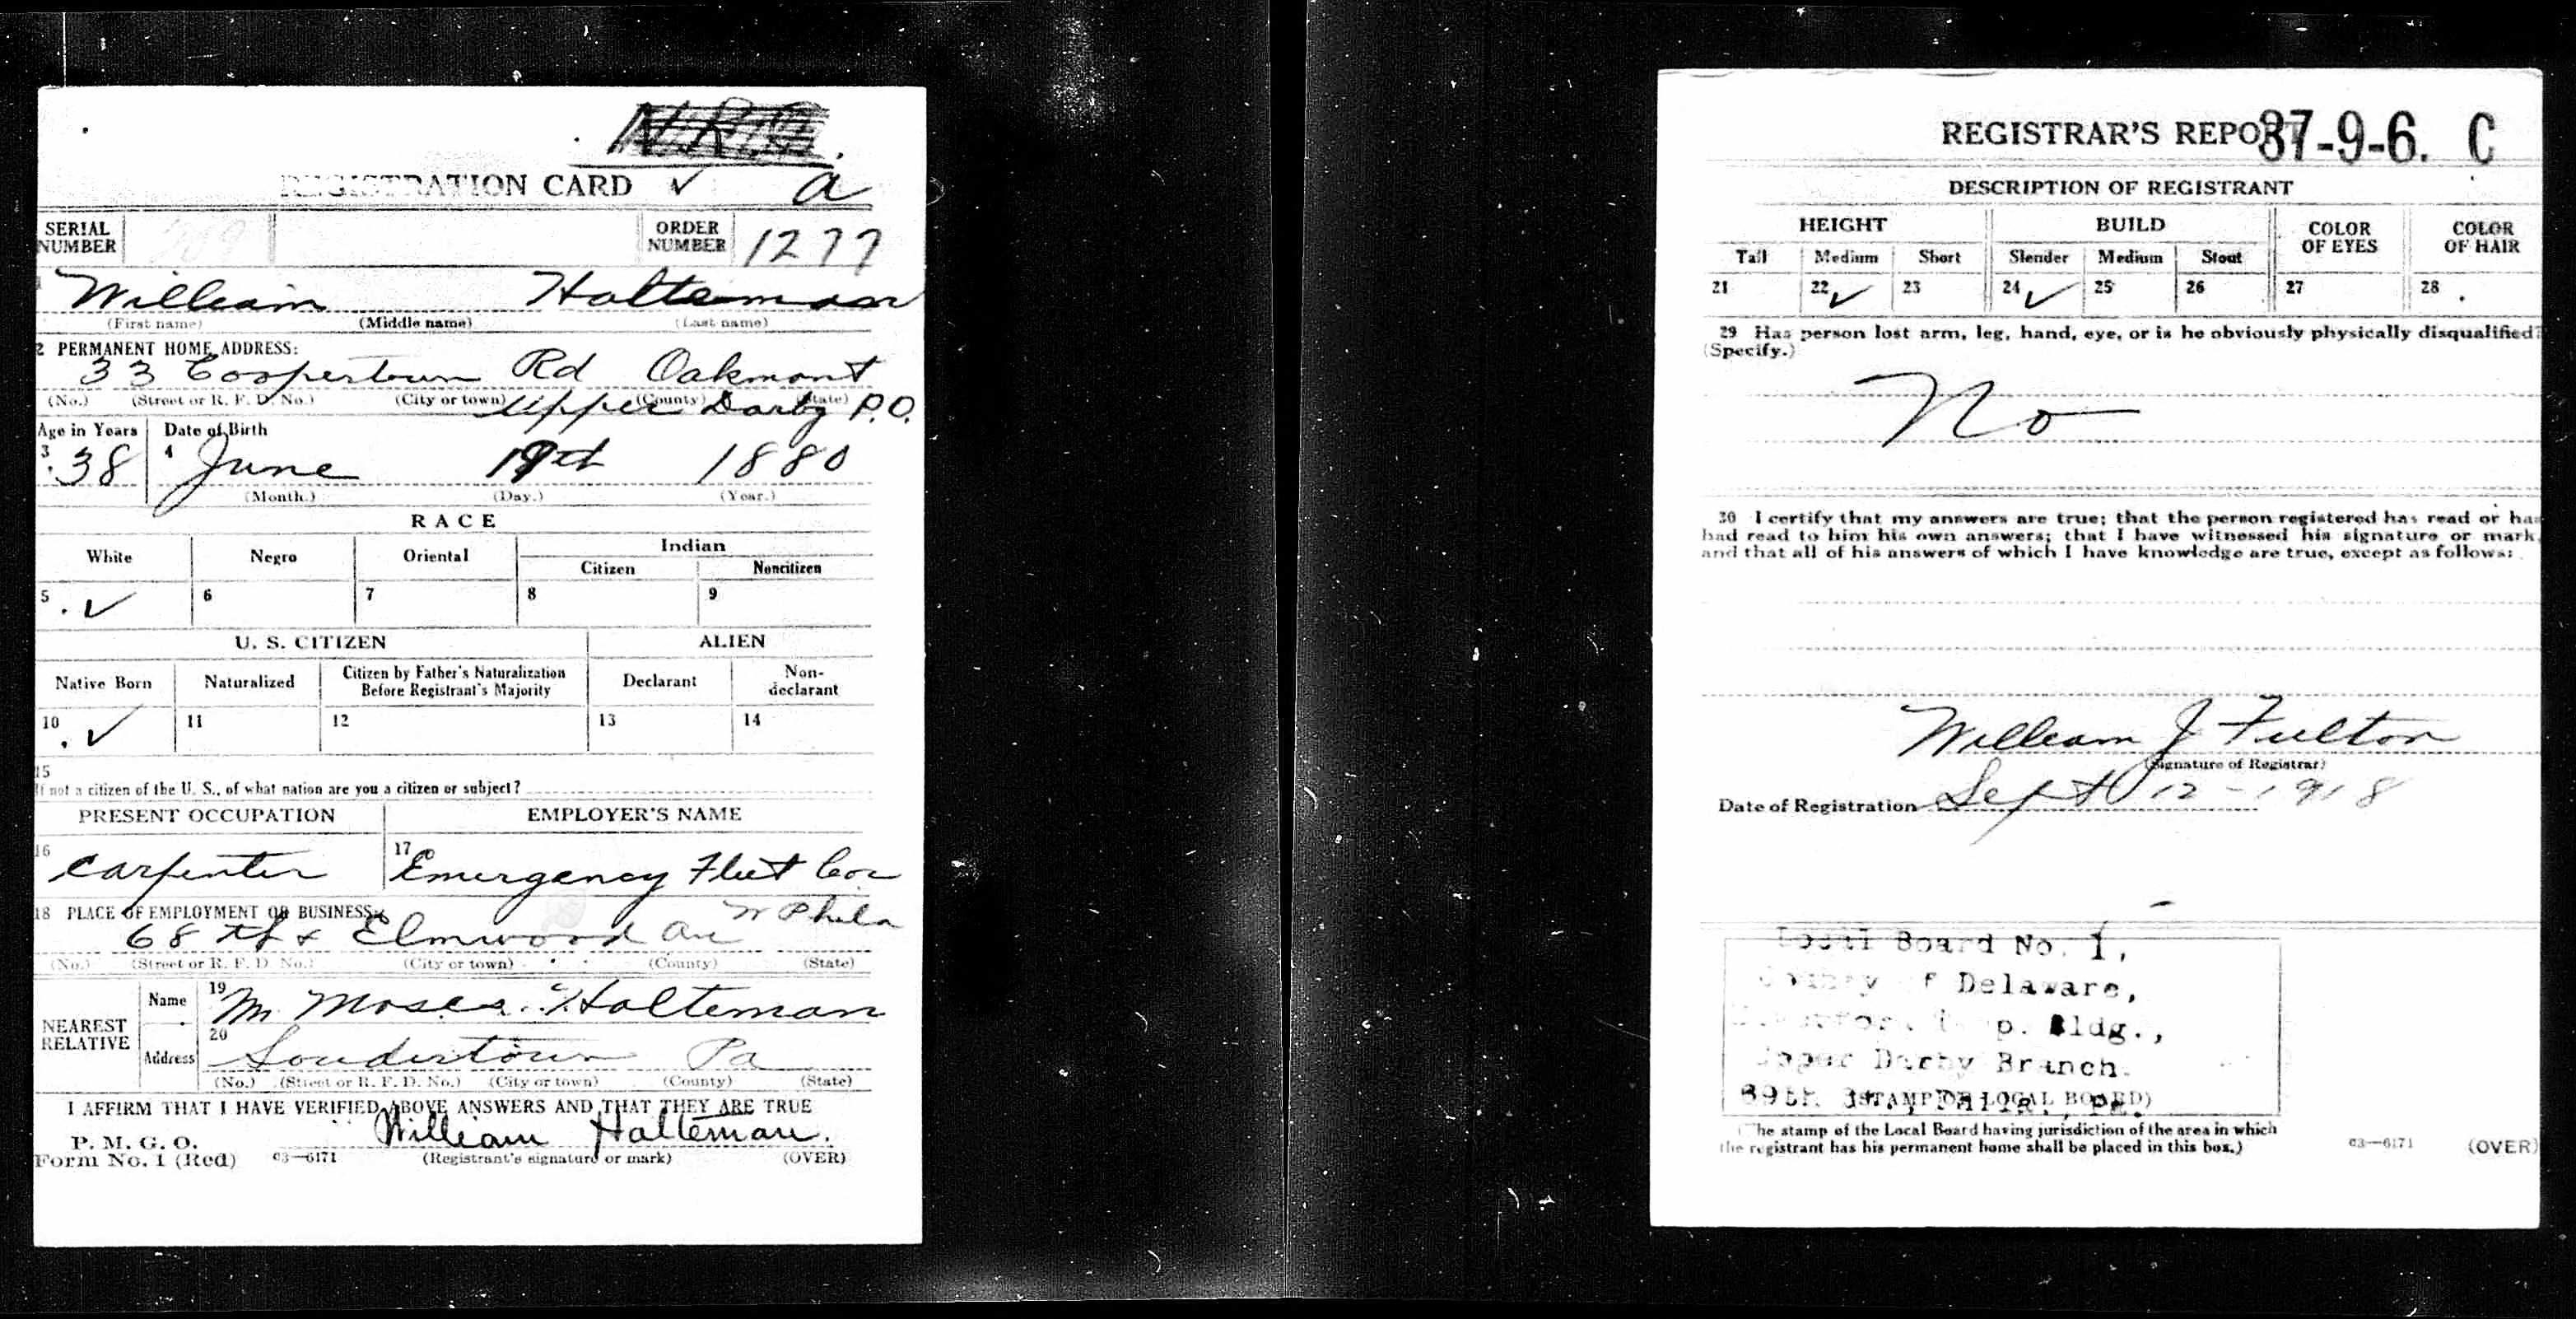 REGISTRATION CARD ✓ a
SERIAL NUMBER
ORDER NUMBER 1277
William Halteman
(First name) (Middle name) (Last name)
2 PERMANENT HOME ADDRESS:
33 Coopertown Rd Oakmont
(No.) (Street or R. F. D. No.) (City or town) (County) (State)
Upper Darby P.O.
Age in Years Date of Birth
3 38 4 June 19th 1880
(Month.) (Day.) (Year.)
RACE
White Negro Oriental Indian
Citizen Noncitizen
5 ✓ 6 7 8 9
U. S. CITIZEN ALIEN
Native Born Naturalized Citizen by Father's Naturalization Before Registrant's Majority Declarant Non-declarant
10 ✓ 11 12 13 14
15
If not a citizen of the U. S., of what nation are you a citizen or subject?
PRESENT OCCUPATION EMPLOYER'S NAME
16 Carpenter 17 Emergency Fleet Cor
18 PLACE OF EMPLOYMENT OR BUSINESS:
68th & Elmwood Av W Phila
(No.) (Street or R. F. D. No.) (City or town) (County) (State)
NEAREST RELATIVE
Name 19 M Moses Halteman
Address 20 Soudertown Pa
(No.) (Street or R. F. D. No.) (City or town) (County) (State)
I AFFIRM THAT I HAVE VERIFIED ABOVE ANSWERS AND THAT THEY ARE TRUE
William Halteman.
P. M. G. O.
Form No. 1 (Red) 03—6171 (Registrant's signature or mark) (OVER)
REGISTRAR'S REPORT 37-9-6. C
DESCRIPTION OF REGISTRANT
HEIGHT BUILD COLOR OF EYES COLOR OF HAIR
Tall Medium Short Slender Medium Stout
21 22 ✓ 23 24 ✓ 25 26 27 28
29 Has person lost arm, leg, hand, eye, or is he obviously physically disqualified?
(Specify.)
No
30 I certify that my answers are true; that the person registered has read or has
had read to him his own answers; that I have witnessed his signature or mark,
and that all of his answers of which I have knowledge are true, except as follows:
William J Fulton
(Signature of Registrar)
Date of Registration Sept 12-1918
Local Board No. 1,
County of Delaware,
Bldg.,
Upper Darby Branch.
69th St., Phila., Pa.
(STAMP OF LOCAL BOARD)
(The stamp of the Local Board having jurisdiction of the area in which
the registrant has his permanent home shall be placed in this box.)
03—6171 (OVER)